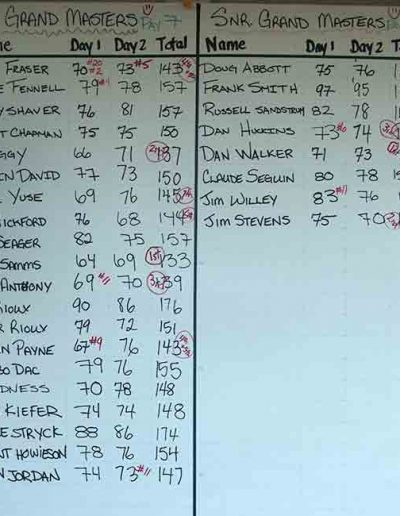 GRAND MASTERS DAY 7
Day 1 Day 2 Total
FRASER 70 #20 #2 73 #5 143
FENNELL 79 78 157
SHAVER 76 81 157
CHAPMAN 75 75 150
66 71 137
DAVID 77 73 150
YUSE 69 76 145
BICKFORD 76 68 144
SEAGER 82 75 157
SAMMS 64 69 1st 133
ANTHONY 69 #11 70 139
RIOUX 90 86 176
RIOUX 79 72 151
PAYNE 67 #9 76 143
DAC 79 76 155
70 78 148
KIEFER 74 74 148
STRYCK 88 86 174
HOWIESON 78 76 154
JORDAN 74 73 #11 147
SNR. GRAND MASTERS
Name Day 1 Day 2
DOUG ABBOTT 75 76
FRANK SMITH 97 95
RUSSELL SANDSTROM 82 78
DAN HUKKINS 73 #6 74
DAN WALKER 71 73
CLAUDE SEGUIN 80 78
JIM WILLEY 83 #11 76
JIM STEVENS 75 70